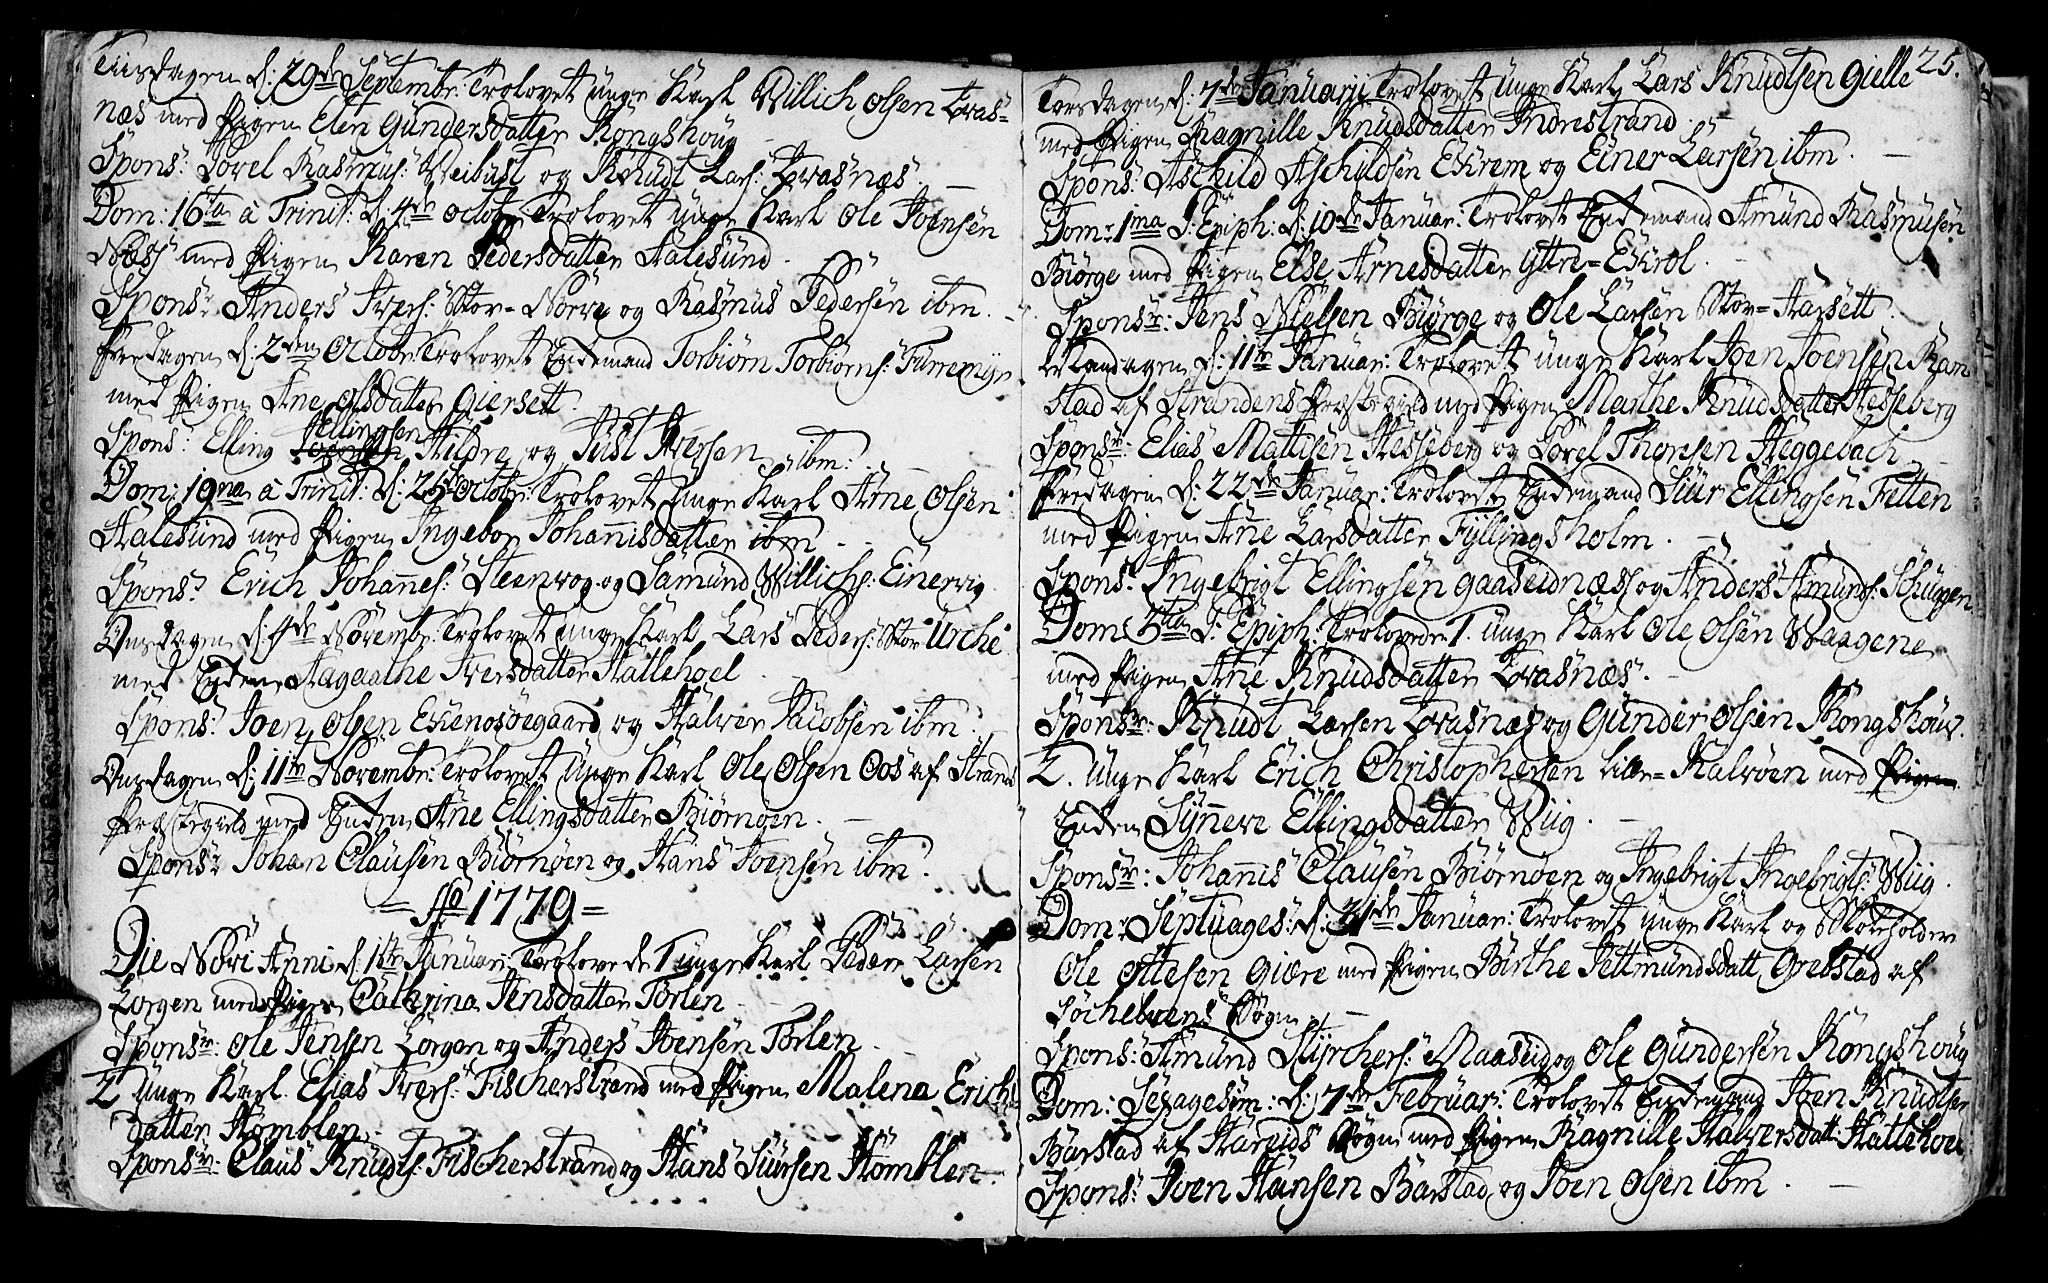 Tiisdagen d: 29de Septembr: Trolovet unge Karl Willich Olsen Qvas=
næs med Pigen Elen Gundersdatter Kongshoug
Spons: Povel Rasmus: Veibust og Knudt Lars: Qvasnæs.
Dom: 16ta à Trinit: d: 4de Octobr: Trolovet unge Karl Ole Joensen
Næss med Pigen Karen Pedersdatter Aalesund.
Sponsr Anders Ivers: Stor-Nørve og Rasmus Pedersen ibm.
Fredagen d: 2den Octobr: Trolovet Enkemand Torbiørn Torbiørns: Furremyr
med Pigen Ane Olsdatter Giersett.
Ellingsen
Spons: Elling Hildre og Just Iversen ibm:
Dom: 19na à Trinit: d: 25de Octobr: Trolovet unge Karl Arne Olsen
Aalesund med Pigen Ingebor Johannisdatter ibm
Sponsr Erich Johannes: Steenvog og Samund Willichs: Einervig
Onsdagen d: 4de Novembr: Trolovet unge Karl Lars Peders: Stor Urche
med Enken Aagaathe Iversdatter Hatlehoel
Spons: Joen Olsen og Halver Jacobsen ibm:
Onsdagen d: 11te Novembr: Trolovet unge Karl Ole Olsen Oos af Strandens
Præstegield med Enken Ane Ellingsdatter Biørnøen.
Sponsr Johan Clausen Biørnøen og Hans Joensen ibm.
= Ao 1779 =
Die Novi Anni d: 1te Januar: Trolovede 1 unge Karl Peder Larsen
Lorgen med Pigen Cathrina Jensdatter Torlen
Sponsr: Ole Jensen Lorgen og Anders Joensen Torlen.
2 Unge Karl Elias Ivers: Fischerstrand med Pigen Malena Erichs
datter Homblen
Sponsr: Claus Knuds: Fischerstrand og Hans Siursen Homblen.
25.
Torsdagen d: 7de Januarii Trolovet unge Karl Lars Knudtsen Gielle
med Pigen Ragnille Knudsdatter Indrestrand.
Sponsr Aschild Aschildsen Eskrem og Einer Larsen ibm.
Domr 1ma P: Epiph: d: 10de Januar: Trolovet Enkemand Amund Rasmusen
Biørge med Pigen Else Arnesdatter Ytre=Eskol.
Sponsr: Jens Nielsen Biørge og Ole Larsen Stor=Aarsett.
Mandagen d: 11te Januar: Trolovet unge Karl Joen Joensen Ram
stad af Strandens Præstegield med Pigen Marthe Knudsdatter Hesseberg
Sponsr: Elias Mattisen Hesseberg og Povel Thorsen Heggebach.
Fredagen d: 22de Januar: Trolovet Enkemand Siur Ellingsen Fetten
med Pigen Ane Larsdatter Fyllingsholm.
Sponsr Ingebrigt Ellingsen Gaaseidnæss og Anders Amunds: Schuggen
Dom: P: Epiph: Trolovede 1. unge Karl Ole Olsen Waagene
med Pigen Ane Knudsdatter Qvasnæs.
Sponsr: Knudt Larsen Qvasnæs og Gunder Olsen Kongshoug.
2. Unge Karl Erich Christophersen Lille=Kalvøen med Pigen
Enken Synneve Ellingsdatter Wiig.
Sponsr: Johannis Clausen Biørnøen og Ingebrigt Ingebrigts: Wiig.
Domr Septuages: d: 31de Januar: Trolovet unge Karl og Skoleholder
Ole Ottesen Giære med Pigen Birthe Pettmundsdatt Grebstad af
Søchelvens Sogn
Spons: Amund Styrchers: Maaseid og Ole Gundersen Kongshoug
Dom: Sexagesim: d: 7de Februar: Trolovet Enkemand Joen Knudtsen
Barstad af Hareids Sogn med Pigen Ragnille Halversdatt: Hatlehoel
Spons: Joen Hansen Barstad og Joen Olsen ibm.